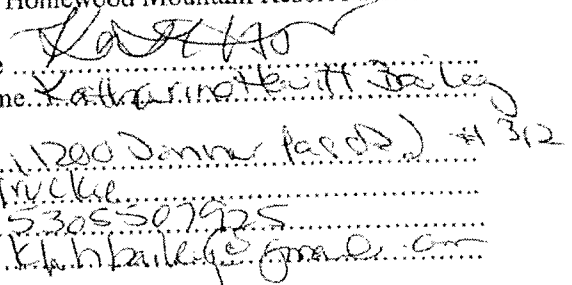 Homewood Mountain Reser
e
me Katharine Hewitt Bailey
11200 Donner Pass Rd #312
Truckee
5305507925
khhbailey@gmail.com